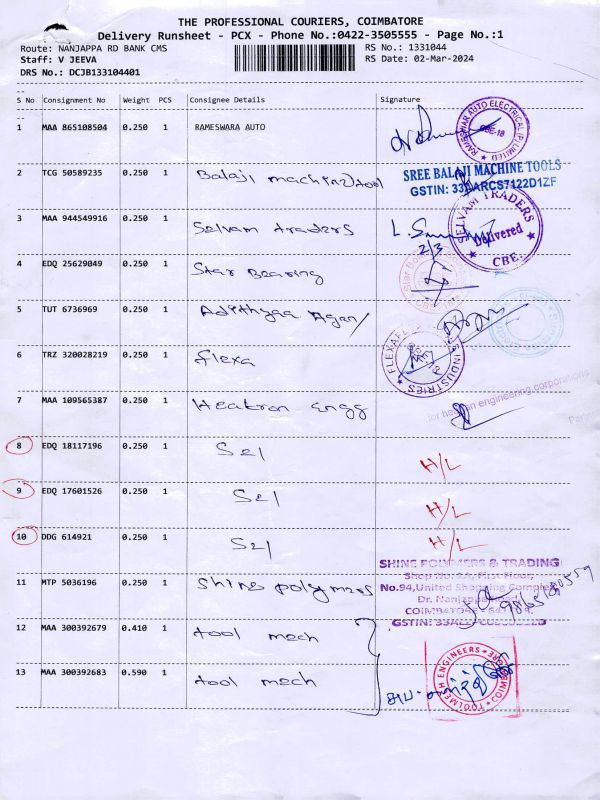 THE PROFESSIONAL COURIERS, COIMBATORE
Delivery Runsheet - PCX - Phone No.:0422-3505555 - Page No.:1
Route: NANJAPPA RD BANK CMS RS No.: 1331044
Staff: V JEEVA RS Date: 02-Mar-2024
DRS No.: DCJB133104401
S No Consignment No Weight PCS Consignee Details Signature
1 MAA 865108504 0.250 1 RAMESWARA AUTO
RAMESWAR AUTO ELECTRICAL (P) LIMITED
CBE-18
2 TCG 50589235 0.250 1 Balaji machine tool
SREE BALAJI MACHINE TOOLS
GSTIN: 33AARCS7122D1ZF
3 MAA 944549916 0.250 1 Selvam traders
2/3
SELVAM TRADERS
Delivered
CBE.
4 EDQ 25629049 0.250 1 Star Bearing
Star
5 TUT 6736969 0.250 1 Adithyaa Agen/
6 TRZ 320028219 0.250 1 flexa
INDUSTRIES
7 MAA 109565387 0.250 1 Heatron engg
engineering corporations
8 EDQ 18117196 0.250 1 Sel H/L
9 EDQ 17601526 0.250 1 Sel H/L
10 DDG 614921 0.250 1 Sel H/L
SHINE POLYMERS & TRADING
First Floor,
No.94, United Shopping Complex
Dr. Nanjappa Road,
COIMBATORE
GSTIN:
11 MTP 5036196 0.250 1 Shine polymers
12 MAA 300392679 0.410 1 tool mech
13 MAA 300392683 0.590 1 tool mech
TOOLMECH ENGINEERS
COIMBATORE